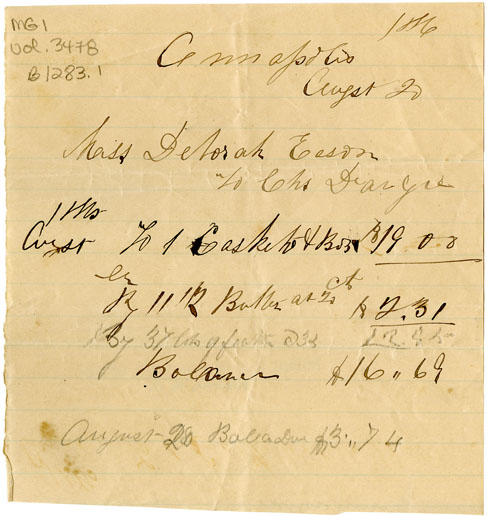 MG 1
Vol. 3478
B 1283.1
Annapolis
Augst 20
Miss Deborah Eason
To Chs Dargie
Augst To 1 Casket & Box $19 00
By 11 lb Butter at 21 ct $ 2.31
By 37 lbs of
Balance $16,,69
August 28 Balla Due $3,,74